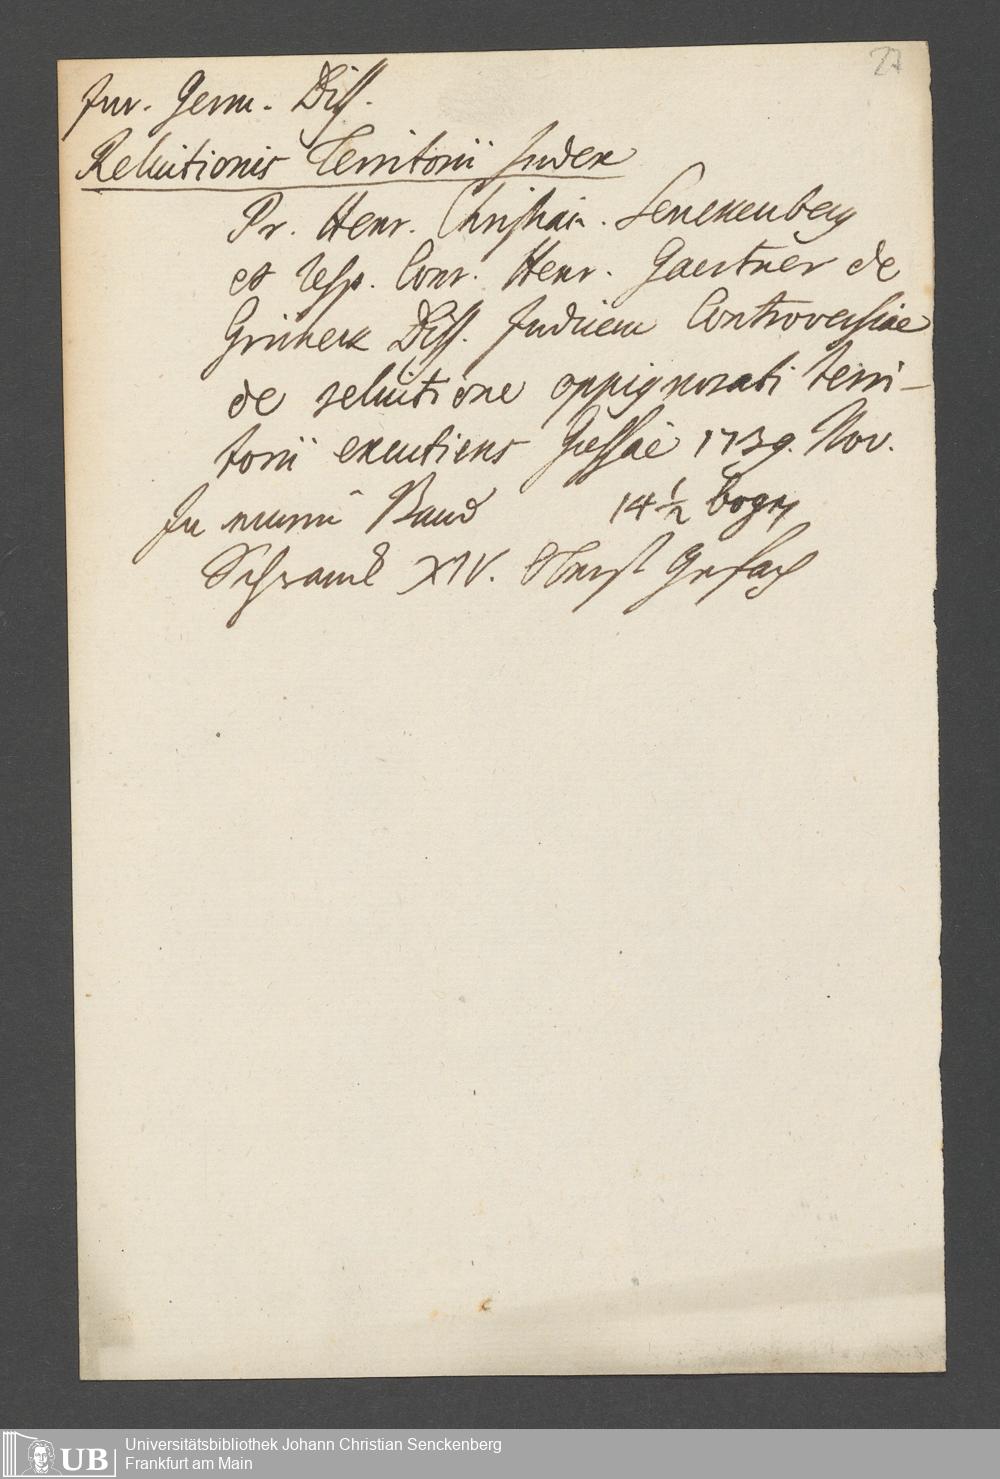 27
Jur. Germ. Diss.
Reluitionis Territorii Judex
Pr. Henr. Christian. Senckenberg
et resp. Conr. Henr. Gaertner de
Diss. Judicem Controversiae
de reluitione oppignorati terri-
torii excutiens Giessae 1739. Nov.
In Band 14 1/2 bogen
Schranck XIV. Gefach
Universitätsbibliothek Johann Christian Senckenberg
UB Frankfurt am Main